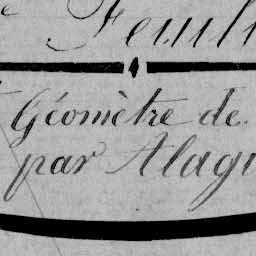 e Feuill
Géomètre de
par Alagi